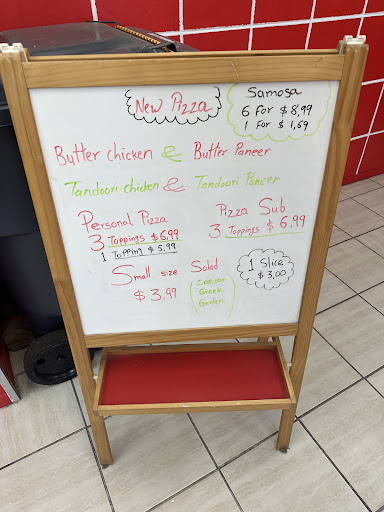 New Pizza
Samosa
6 For $8,99
1 For $ 1,69
Butter chicken & Butter Paneer
Tandoori chicken & Tandoori Paneer
Personal Pizza
3 Toppings $6,99
1 Topping $5,99
Pizza Sub
3 Toppings $6,99
Small size Salad
$3,99
Ceaser
Greek
Garden
1 Slice
$3,00